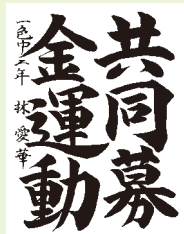 共同募
金運動
一色中二年 林愛華